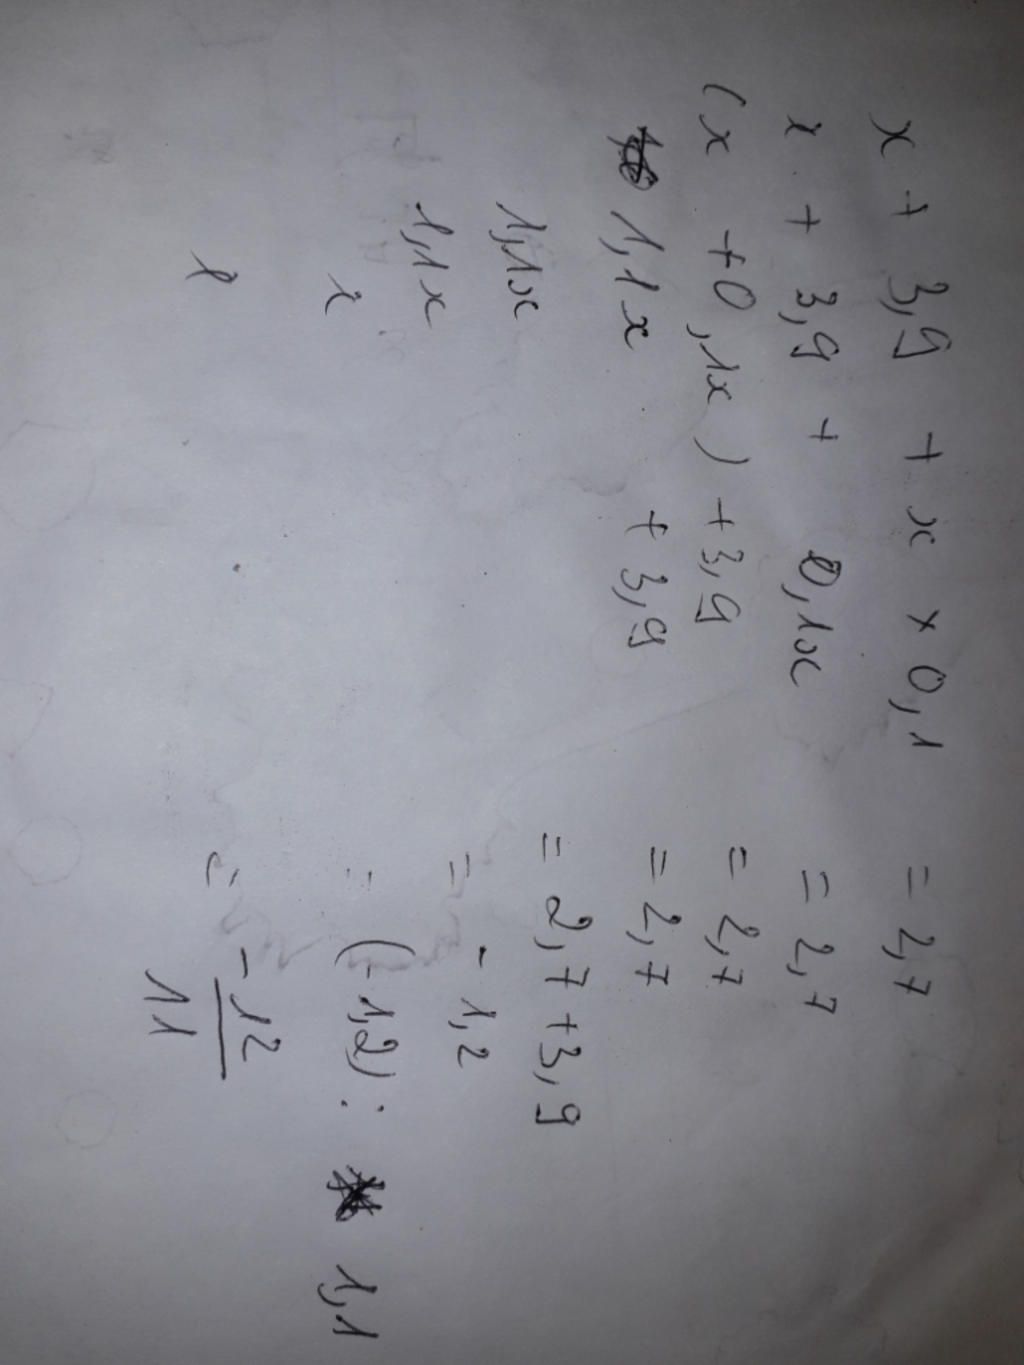 x + 3,9 + x × 0,1 = 2,7
x + 3,9 + 0,1x = 2,7
(x + 0,1x) + 3,9 = 2,7
1,1x + 3,9 = 2,7
1,1x = 2,7 + 3,9
1,1x = - 1,2
x = (- 1,2) : 1,1
x = -12/11